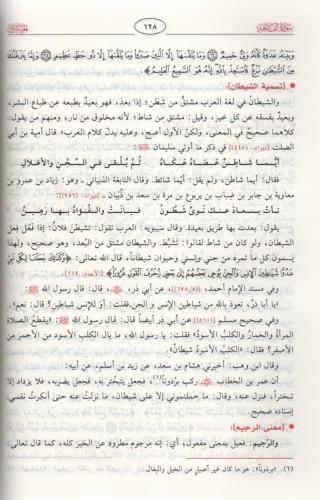 سورة الفاتحة
١٢٨
وبينه عداوة كأنه ولي حميم وما يلقاها إلا الذين صبروا وما يلقاها إلا ذو حظ عظيم وإما ينزغنك
من الشيطان نزغ فاستعذ بالله إنه هو السميع العليم﴾.
[تسمية الشيطان]:
والشيطان في لغة العرب مشتق من شَطَن: إذا بعد، فهو بعيد بطبعه عن طباع البشر،
وبعيد بفسقه عن كل خير، وقيل: مشتق من شاط؛ لأنه مخلوق من نار، ومنهم من يقول:
كلاهما صحيح في المعنى، ولكن الأول أصح، وعليه يدل كلام العرب؛ قال أمية بن أبي
الصلت في ذكر ما أوتي سليمان
أيما شاطن عصاه عكاه ثم يلقى في السجن والأغلال
فقال: أيما شاطن، ولم يقل: أيما شائط. وقال النابغة الذبياني ـ وهو: زياد بن عمرو بن
معاوية بن جابر بن ضباب بن يربوع بن مرة بن سعد بن ذُبيان ـ
نأت بسعاد عنك نوى شطون فبانت والفؤاد بها رهين
يقول: بعدت بها طريق بعيدة. وقال سيبويه: العرب تقول: تشيطن فلان؛ إذا فَعَل فِعل
الشيطان، ولو كان من شاط لقالوا: تشيَّط. والشيطان مشتق من البعد، وهو صحيح، ولهذا
يسمون كل ما تمرد من جني وإنسي وحيوان شيطاناً، قال الله تعالى: ﴿وكذلك جعلنا لكل نبي
عدوا شياطين الإنس والجن يوحي بعضهم إلى بعض زخرف القول غرورا﴾ [الأنعام: ١١٢].
وفي مسند الإمام أحمد، عن أبي ذر، قال: قال رسول الله ﷺ:
«يا أبا ذر! تعوذ بالله من شياطين الإنس والجن» فقلت: أوَ للإنس شياطين؟ قال: «نعم».
وفي صحيح مسلم عن أبي ذر أيضاً قال: قال رسول الله ﷺ: «يقطع الصلاة
المرأة والحمار والكلب الأسود». فقلت: يا رسول الله، ما بال الكلب الأسود من الأحمر من
الأصفر؟ فقال: «الكلب الأسود شيطان».
وقال ابن وهب: أخبرني هشام بن سعد، عن زيد بن أسلم، عن أبيه:
أن عمر بن الخطاب ركب برذوناً(١)، فجعل يتبختر به، فجعل يضربه، فلا يزداد إلا
تبختراً، فنزل عنه، وقال: ما حملتموني إلا على شيطان، ما نزلت عنه حتى أنكرت نفسي.
إسناده صحيح.
[معنى الرجيم]:
والرَّجيم: فعيل بمعنى مفعول، أي: إنه مرجوم مطرود عن الخير كله، كما قال تعالى:
(١) «برذوناً»: هو ما كان غير أصيل من الخيل والبغال.